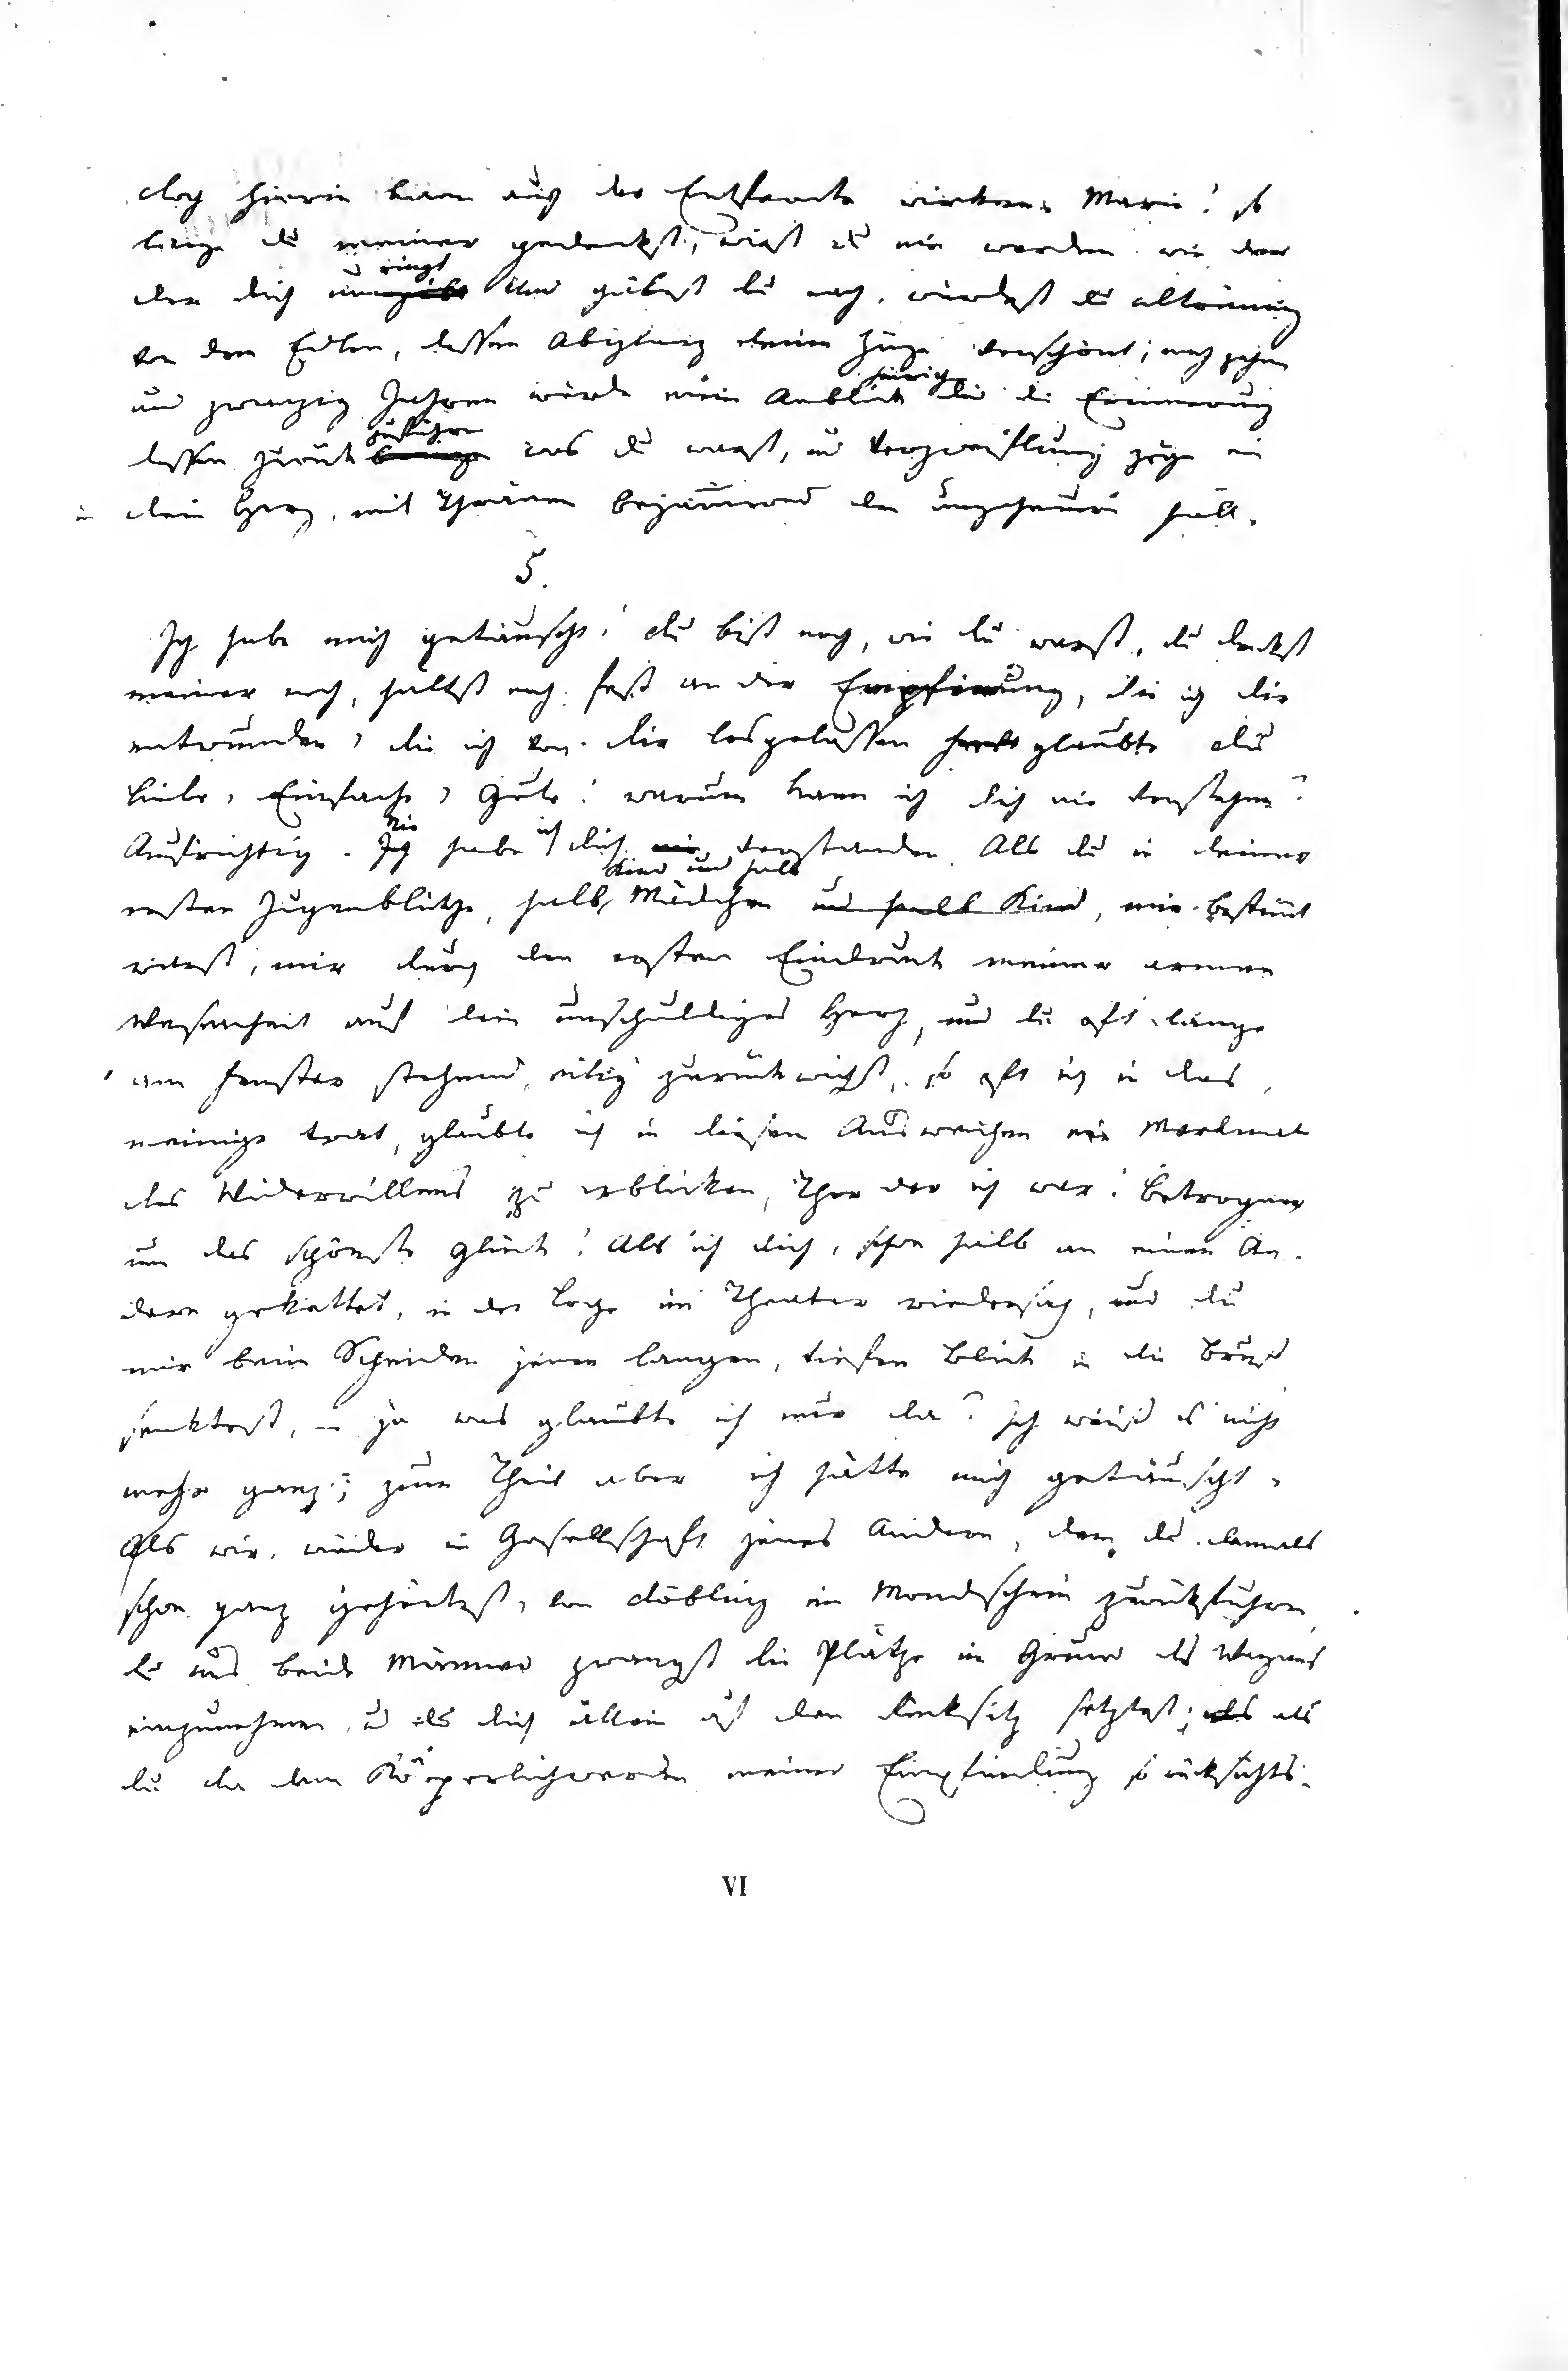 doch hierin kann auch der Entfernte wirken. Marie! so
lange du meiner gedenkst, wirst du nie werden wie der
der dich umgibt Und gäbest du nach, würdest du abtrünnig
von dem Edlen, dessen Abglanz deine Züge verschönt; nach zehn
und zwanzig Jahren würde mein Anblick dir die Erinnerung
dessen zurück zuführen bringen was du warst, und Verzweiflung zöge ein
in dein Herz, mit Thränen bejammernd den ungeheuern Fall.
5.
Ich habe mich getäuscht! du bist noch, wie du warst, du denkst
meiner noch, hältst noch fest an der Empfindung, die ich dir
entwunden, die ich von dir losgelassen glaubte du
Liebe, Einfache, Gute! warum kann ich dich nie verstehen?
Aufrichtig. Nie Ich habe ich dich nie verstanden. Als du in deiner
ersten Jugenblüthe, halb Kind und halb Mädchen und halb Kind, mir bestimt
warst, mir durch den ersten Eindruck meiner armen
Wesenheit auf dein unschuldiges Herz, und du oft lange
am Fenster stehend, eilig zurückwichst, so oft ich in das
meinige trat, glaubte ich in diesem Ausweichen ein Merkmal
des Widerwillens zu erblicken, Thor der ich war! Betrogner
um das schönste Glück! Als ich dich, schon halb an einen An-
dern gekettet, in der Loge im Theater wiedersah, und du
mir beim Scheiden jenen langen, tiefen Blick in die Brust
senktest, – ja was glaubte ich nur da? Ich weiß es nicht
mehr ganz; zum Theil aber ich hatte mich getäuscht.
Als wir, wieder in Gesellschaft jenes Andern, dem du damals
schon ganz gehörtest, von Döbling im Mondschein zurückfuhren,
du uns beide Männer zwangst die Plätze im Grund des Wagens
einzunehmen, und dich allein auf den Rücksitz setztest; als als
du da dem Körperlichwerden meiner Empfindung so rücksichts-
VI